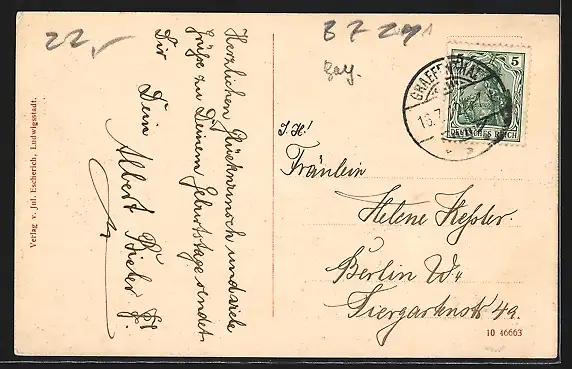 22,-
B 7 291
Bay.
Herzlichen Glückwunsch und viele
Grüße zu Deinem Geburtstage sendet
Dir
Dein
Albert
Verlag v. Jul. Escherich, Ludwigsstadt.
GRAEFENTHAL
16.7.
5
DEUTSCHES REICH
I.H!
Fräulein
Helene Kessler.
Berlin W.
Tiergartenstr 4a.
10 46663